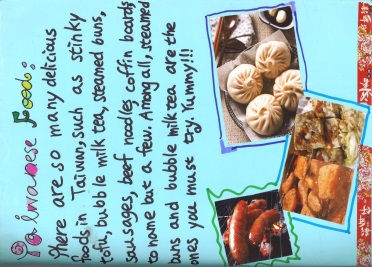 Taiwanese Food:
There are so many delicious
foods in Taiwan, such as stinky
tofu, bubble milk tea, steamed buns,
sausages, beef noodles, coffin boards
to name but a few. Among all, steamed
buns and bubble milk tea are the
ones you must try. Yummy!!!